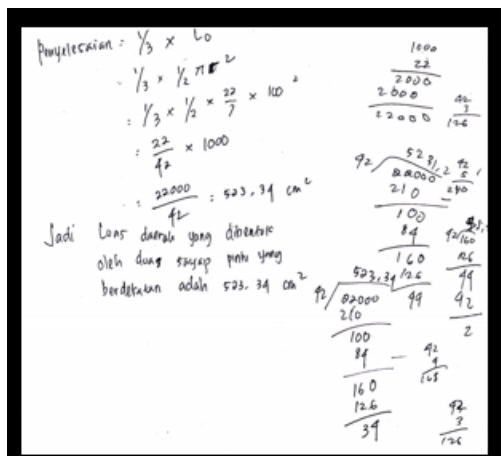 Penyelesaian : 1/3 × Lo
: 1/3 × 1/2 πr²
: 1/3 × 1/2 × 22/7 × 100²
: 22/42 × 1000
: 22000/42 : 523,34 cm²
Jadi Luas daerah yang dibentuk
oleh dua sayap pintu yang
berdekatan adalah 523.34 cm²
1000
22
2000
2000
22000
42
3
126
42
22000
210
100
84
160
126
44
42
5
42
160
126
44
42
2
523,34
42
22000
210
100
84
160
126
34
42
4
168
42
3
126